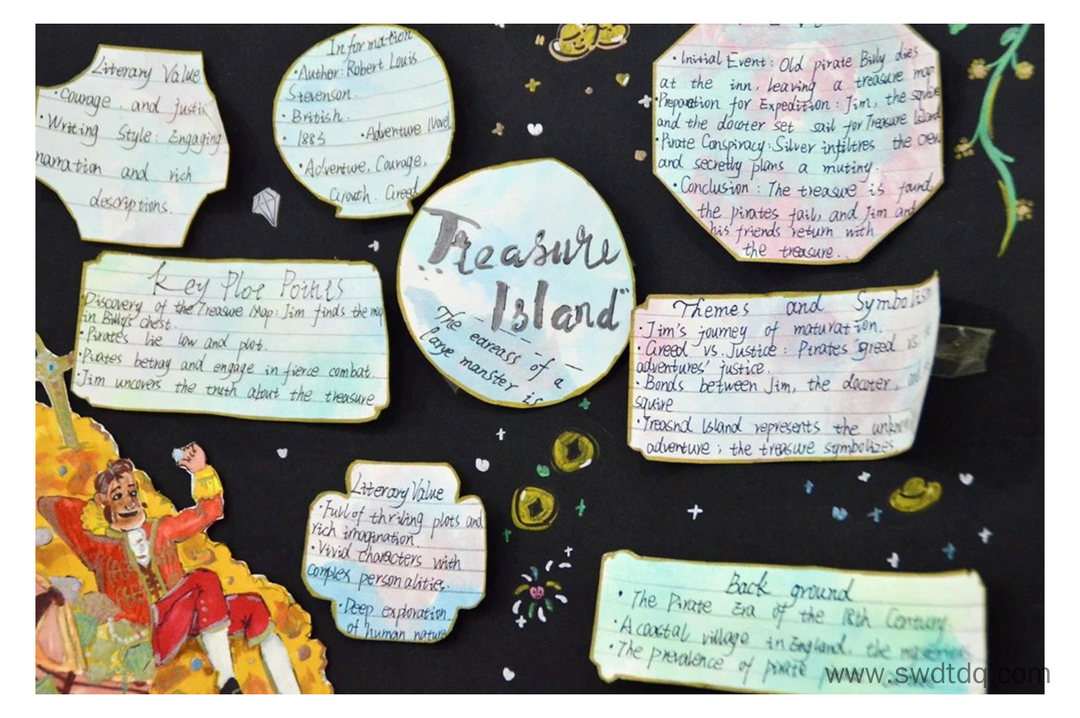 Literary Value
• Courage and justic
• Writing Style: Engaging
narration and rich
descriptions.
Information
• Author: Robert Louis
Stevenson.
• British.
• 1883 • Adventure Novel
• Adventure, Courage,
Growth. Greed
• Initial Event: Old pirate Billy dies
at the inn, leaving a treasure map.
• Preparation for Expedition: Jim, the squire
and the docoter set sail for Treasure Island
• Pirate Conspiracy: Silver infiltres the crew
and secretly plans a mutiny.
• Conclusion: The treasure is found,
the pirates fail, and Jim and
his friends return with
the treasure..
"Treasure
Island"
The eareass of a
large manster is
Key Ploe Points
• Discovery of the Treasure Map: Jim finds the map
in Billy's chest.
• Pirates lie low and plot.
• Pirates betray and engage in fierce combat.
Jim uncovers the truth about the treasure
Themes and Symbolism
• Jim's journey of maturation.
• Greed vs. Justice: Pirates' greed vs.
adventures' justice.
• Bonds between Jim, the docoter,
squire
• Treasnd Island represents the
adventure, the treasure symbolizes.
Literary Value
• Full of thriling plots and
rich imagination.
• Vivid characters with
complex personalities.
• Deep exploration
of human nature
Back ground
• The Pirate Era of the 18th Century
• A coastal village in England, the
• The prevalence of pirate
www.swdtdq.com